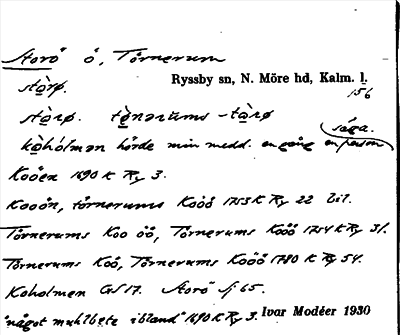 Storö ö, Törnerum
Ryssby sn, N. Möre hd, Kalm. l.
156
sta̱rø.
sta̱rø. tø̱nərums-ta̱rø
säga.
ka̱hólmən hörde min medd. en gång en person
Kooön 1690 K Ry 3.
Kooön, törnerums Koöö 1753 K Ry 22 Bil.
Törnerums Koo öö, Törnerums Koöö 1754 K Ry 31.
Törnerums Koö, Törnerums Koöö 1780 K Ry 54.
Koholmen GS 17. Storö Sj 65.
"något muhlbete ibland" 1690 K Ry 3.
Ivar Modéer 1930